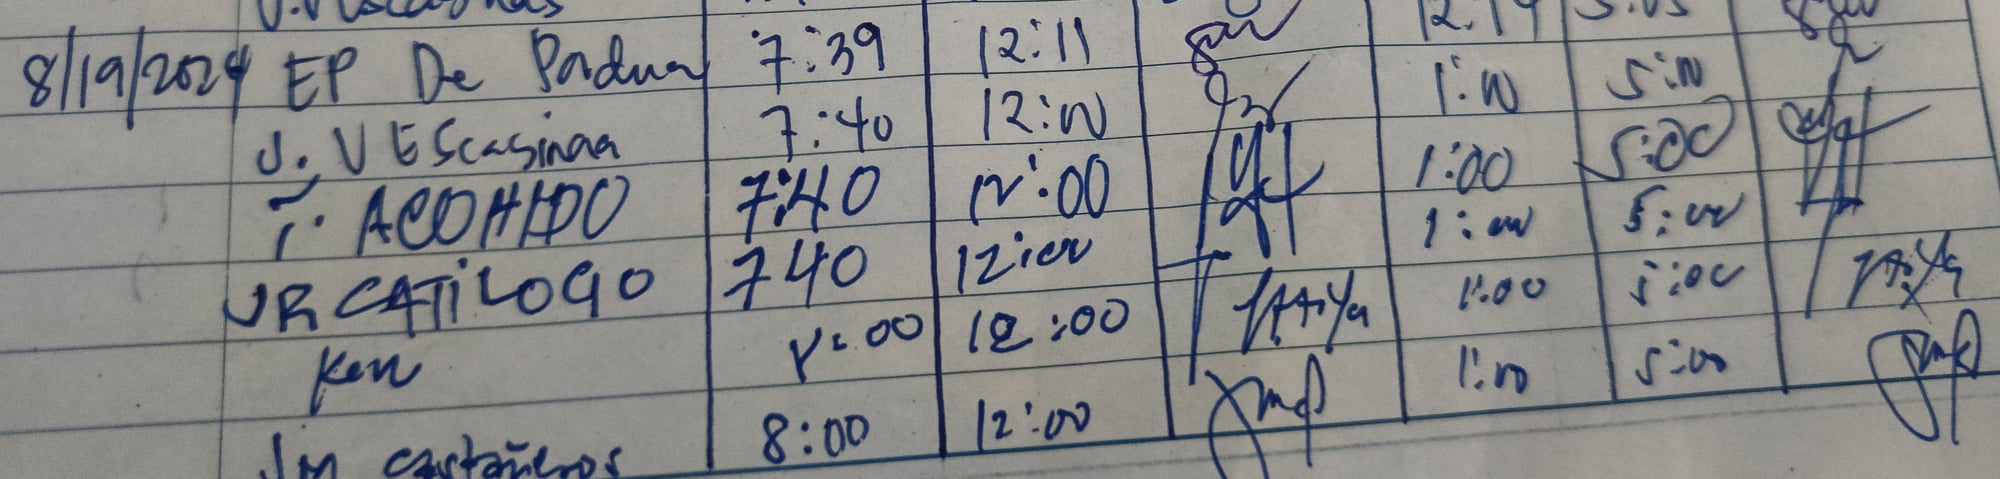 8/19/2024 EP De Padua 7:39 12:11 1:00 5:00
J.V Escasinas 7:40 12:00 1:00 5:00
T. ACOHIDO 7:40 12:00 1:00 5:00
JR CATILOGO 740 12:00 1:00 5:00
Ken 8:00 12:00 1:00 5:00
Jm castañeros 8:00 12:00